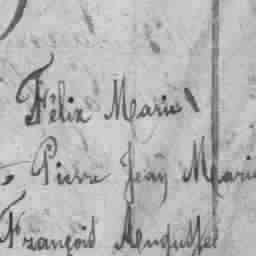 Félix Marie
Pierre Jean Marie
François Auguste